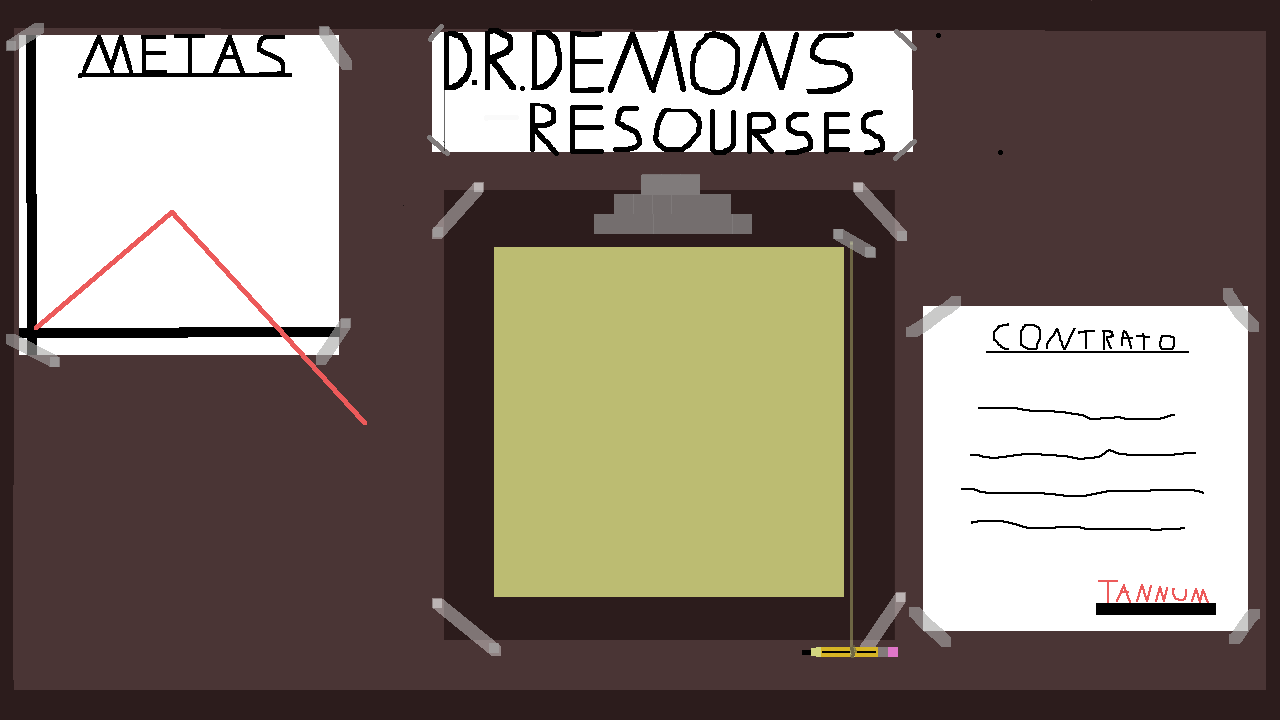 METAS
D.R.DEMONS
RESOURSES
CONTRATO
TANNUM